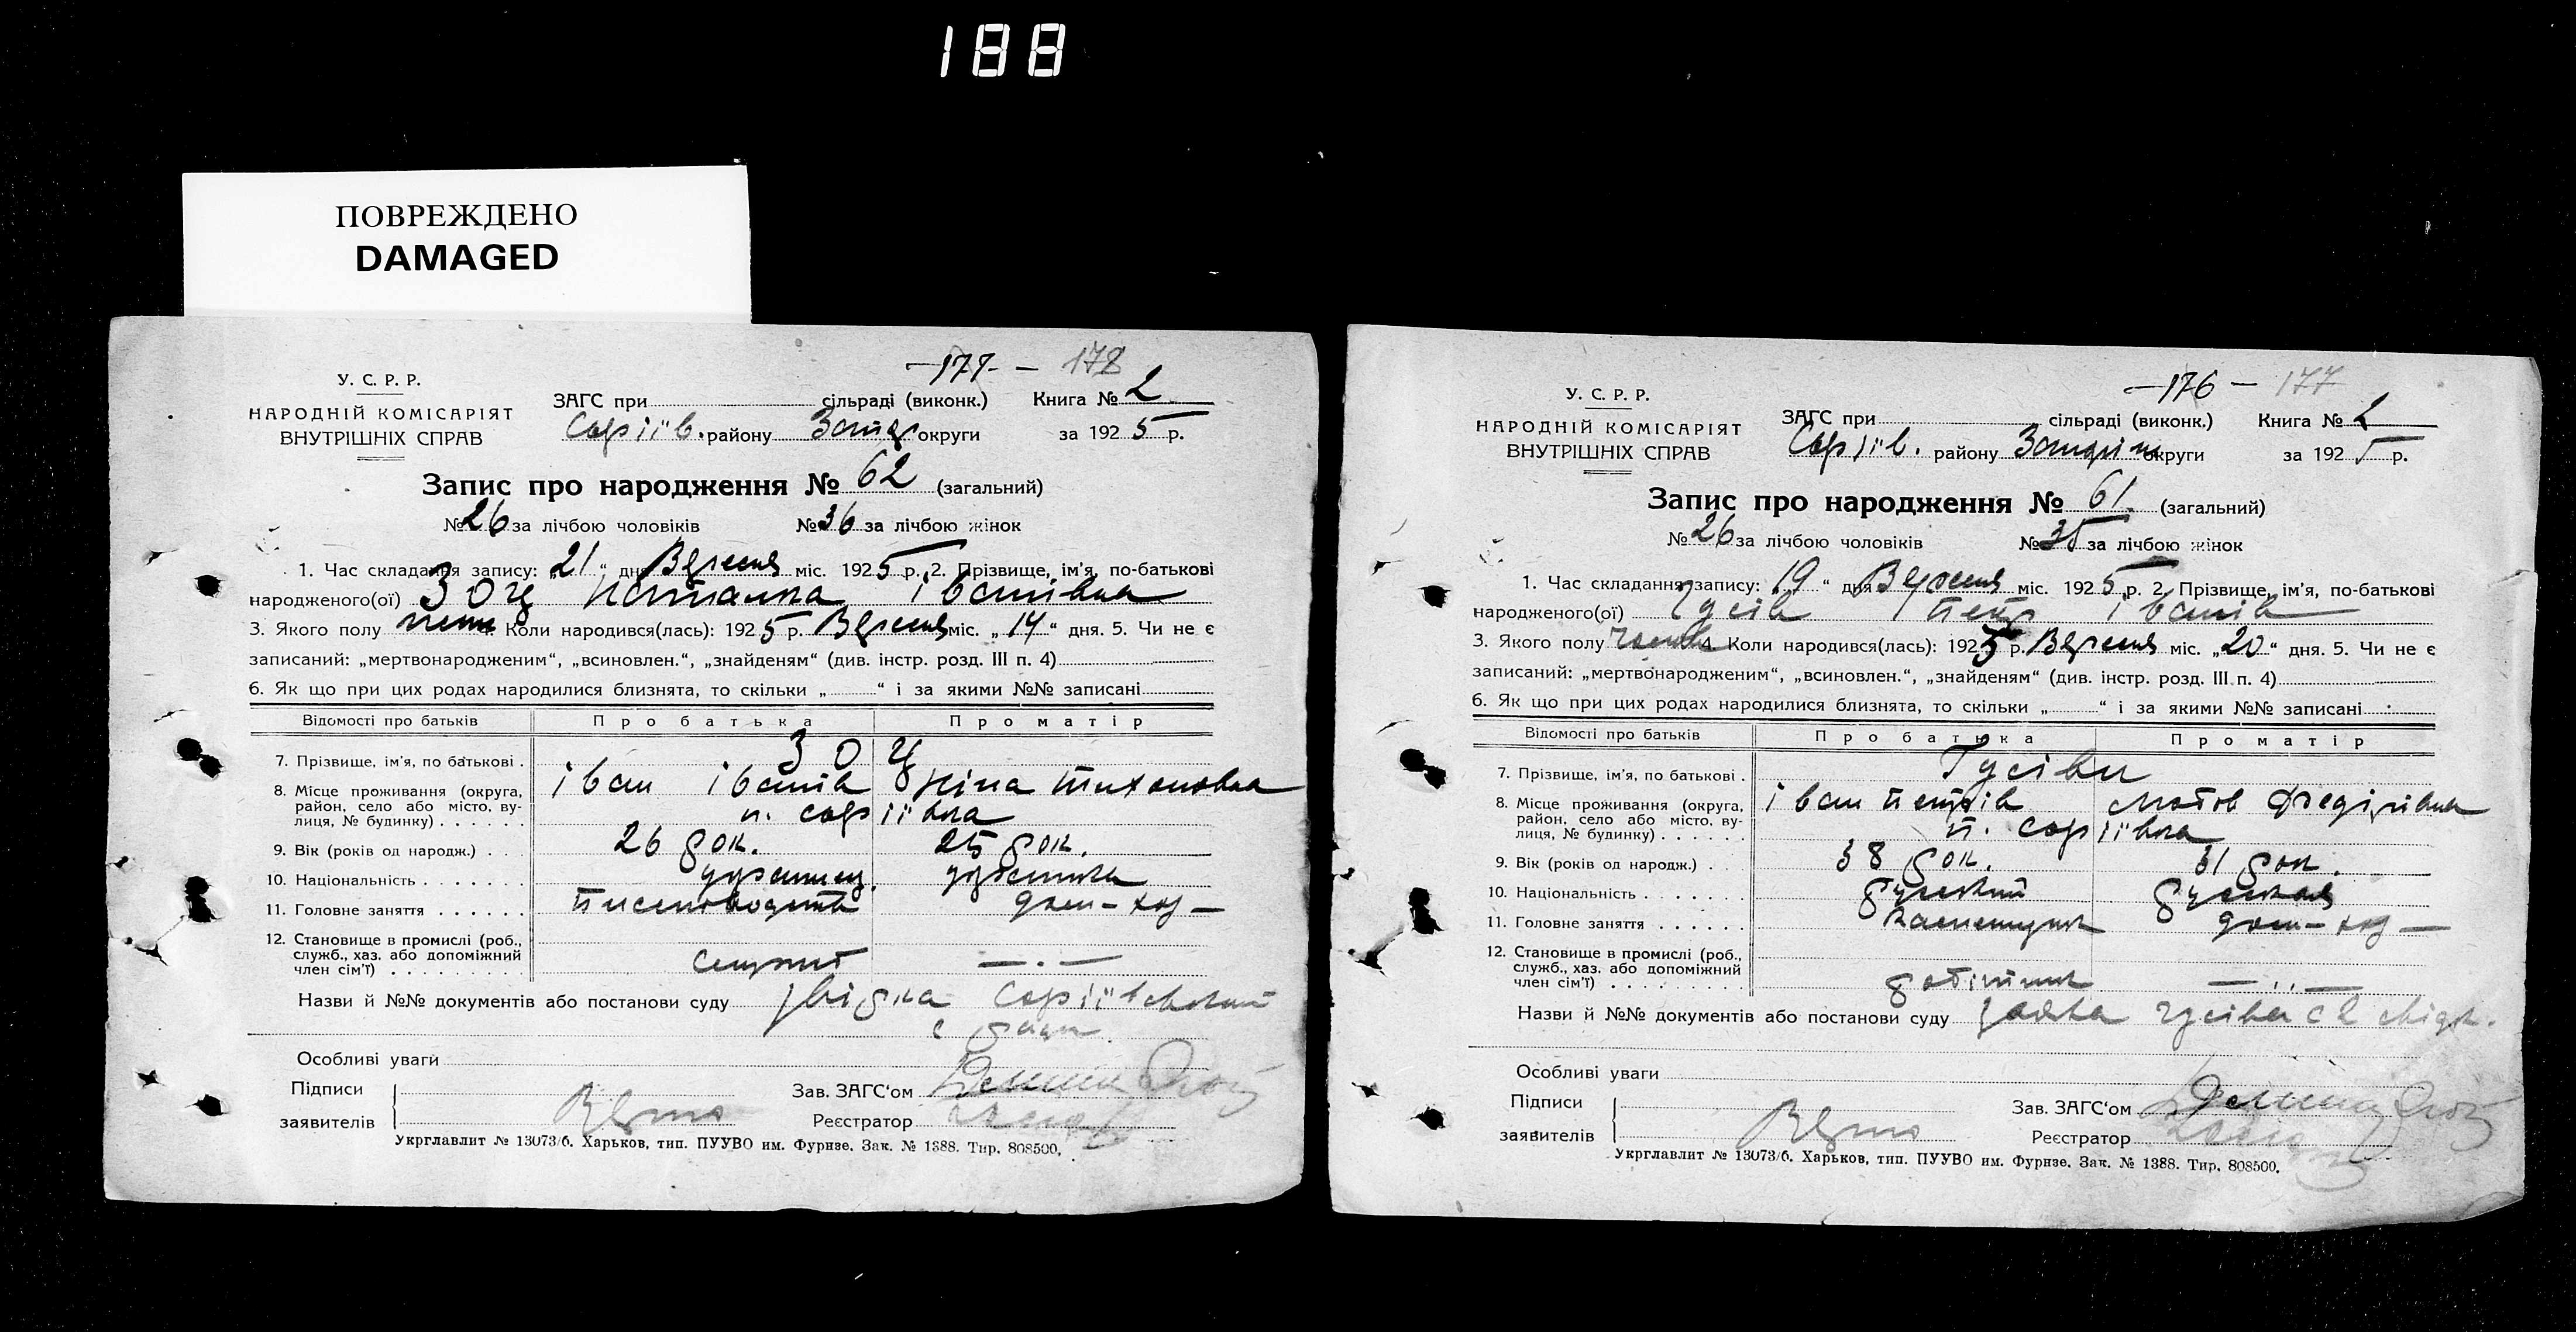 188
ПОВРЕЖДЕНО
DAMAGED
—177— 178
У. С. Р. Р.
НАРОДНІЙ КОМІСАРІЯТ
ВНУТРІШНІХ СПРАВ
ЗАГС при сільраді (виконк.) Книга № 2
Сергіїв. району Запор округи за 1925 р.
Запис про народження № 62 (загальний)
№ 26 за лічбою чоловіків № 36 за лічбою жінок
1. Час складання запису: „21“ дня Вересня міс. 1925 р. 2. Прізвище, ім'я, по-батькові
народженого(ої) Зоц Наталка Іванівна
3. Якого полу Коли народився(лась): 1925 р. Вересня міс. „14“ дня. 5. Чи не є
записаний: „мертвонародженим“, „всиновлен.“, „знайденям“ (див. інстр. розд. III п. 4)
6. Як що при цих родах народилися близнята, то скільки „ “ і за якими №№ записані
Відомості про батьків Про батька Про матір
7. Прізвище, ім'я, по батькові . Зоц
Іван Іванів Тихоновна
8. Місце проживання (округа, район, село або місто, вулиця, № будинку) . . . . . .
9. Вік (років од народж.) . . . 26 рок. 25 рок.
10. Національність . . . . . . .
11. Головне заняття . . . . . . дом-хоз—
12. Становище в промислі (роб., служб., хаз. або допоміжний член сім'ї) . . . . . . . . — . —
Назви й №№ документів або постанови суду
Особливі уваги
Підписи
заявителів
Зав. ЗАГС'ом
Реєстратор
Укрглавлит № 13073/6. Харьков, тип. ПУУВО им. Фурнзе. Зак. № 1388. Тир. 808500.
—176— 177
У. С. Р. Р.
НАРОДНІЙ КОМІСАРІЯТ
ВНУТРІШНІХ СПРАВ
ЗАГС при сільраді (виконк.) Книга № 2
Сергіїв. району округи за 1925 р.
Запис про народження № 61. (загальний)
№ 26 за лічбою чоловіків № 35 за лічбою жінок
1. Час складання запису: „19“ дня Вересня міс. 1925 р. 2. Прізвище, ім'я, по-батькові
народженого(ої) Гусів Петр Іванів
3. Якого полу 4. Коли народився(лась): 1925 р. Вересня міс. „20“ дня. 5. Чи не є
записаний: „мертвонародженим“, „всиновлен.“, „знайденям“ (див. інстр. розд. III п. 4)
6. Як що при цих родах народилися близнята, то скільки „ “ і за якими №№ записані
Відомості про батьків Про батька Про матір
7. Прізвище, ім'я, по батькові . Гусіви
Іван Петрів
8. Місце проживання (округа, район, село або місто, вулиця, № будинку) . . . . . .
9. Вік (років од народж.) . . 38 рок. 31 рок.
10. Національність . . . . . . . руський руськая
11. Головне заняття . . . . . . дом-хоз—
12. Становище в промислі (роб., служб., хаз. або допоміжний член сім'ї) . . . . . . . . робітник
Назви й №№ документів або постанови суду заява Гусіва
Особливі уваги
Підписи
заявителів
Зав. ЗАГС'ом
Реєстратор
Укрглавлит № 13073/6. Харьков, тип. ПУУВО им. Фурнзе. Зак. № 1388. Тир. 808500.